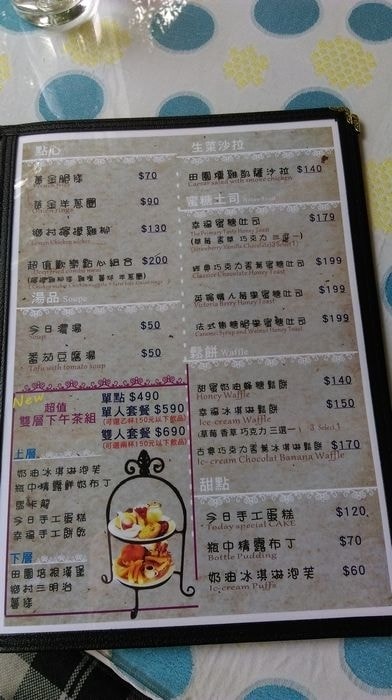 點心
黃金脆條 $70
黃金洋蔥圈 $90
Onion rings
鄉村檸檬雞柳 $130
超值歡樂點心組合 $200
湯品 Soupe
今日濃湯 $50
Soup
番茄豆腐湯 $50
Tofu with tomato soup
New
超值
雙層下午茶組
單點 $490
單人套餐 $590
(可選乙杯150元以下飲品)
雙人套餐 $690
(可選兩杯150元以下飲品)
上層
奶油冰淇淋泡芙
瓶中精露鮮奶布丁
今日手工蛋糕
幸福手工餅乾
下層
田園培根漢堡
鄉村三明治
薯條
生菜沙拉
田園燻雞凱薩沙拉 $140
Caesar salad with smoke chicken
蜜糖土司 Honey Toast
幸福蜜糖吐司 $179
The Primary Taste Honey Toast
(草莓 香草 巧克力 三選一)
(Strawberry Vanilla Chocolate 3 Select 1)
經典巧克力香蕉蜜糖吐司 $199
Classice Chocolate Honey Toast
英國情人莓果蜜糖吐司 $199
Victoria Berry Honey Toast
法式焦糖脆果蜜糖吐司 $199
Caramel Syrup and Walnut Honey Toast
鬆餅 Waffle
甜蜜奶油蜂糖鬆餅 $140
Honey Waffle
幸福冰淇淋鬆餅 $150
Ice-cream Honey Waffle
(草莓 香草 巧克力 三選一) 3 Select 1
古典巧克力香蕉冰淇淋鬆餅 $170
Ice-cream Chocolat Banana Waffle
甜點
今日手工蛋糕 $120
Today special CAKE
瓶中精露布丁 $70
Bottle Pudding
奶油冰淇淋泡芙 $60
Ic-cream Puffs